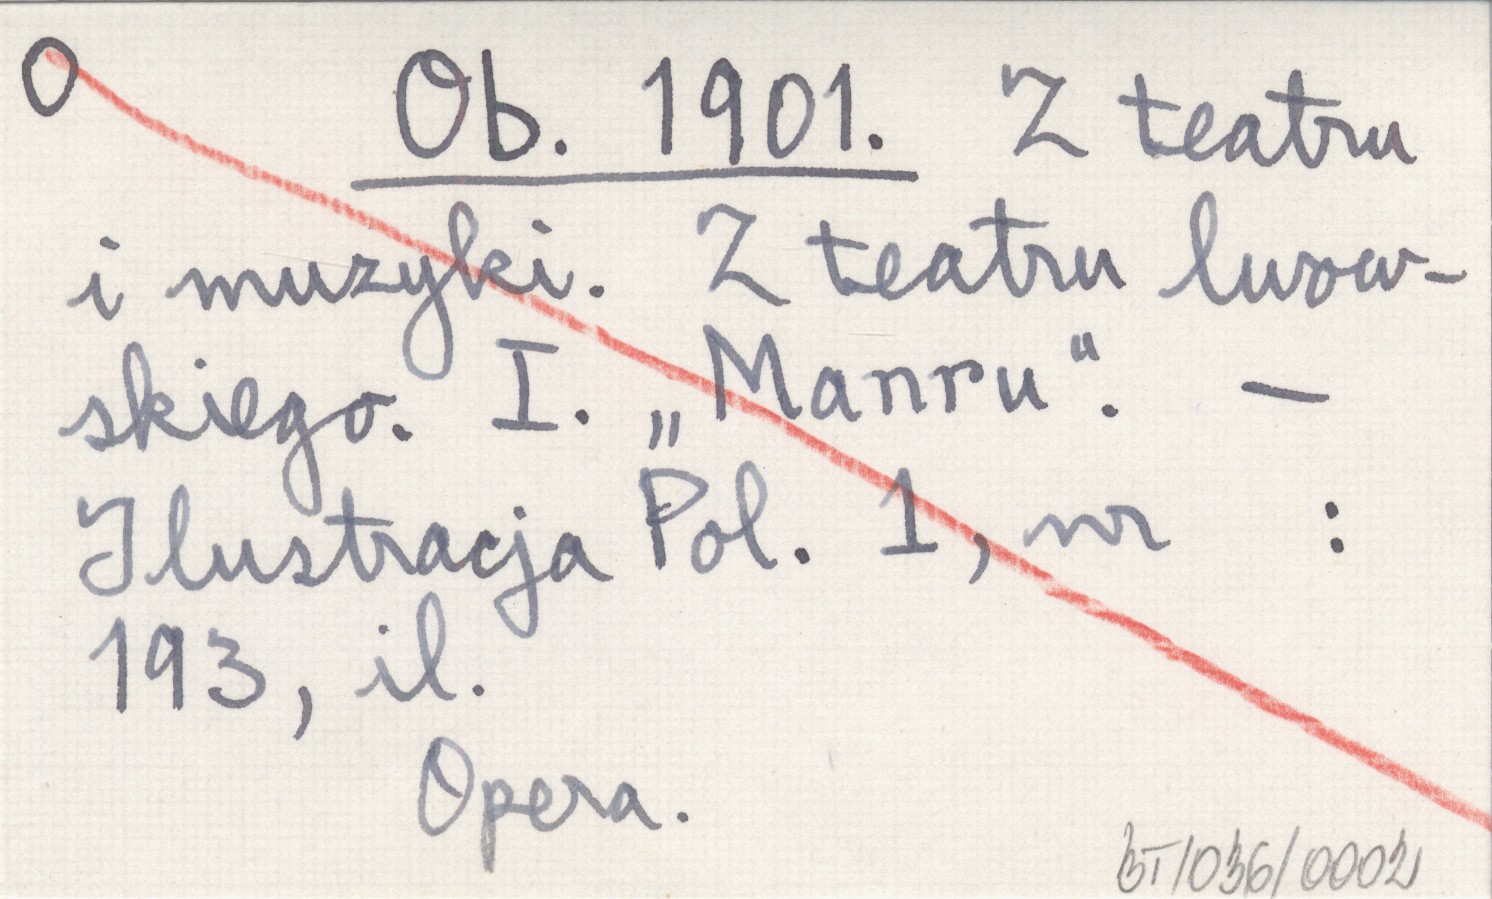 O Ob. 1901. Z teatru
i muzyki. Z teatru lwow-
skiego. I. „Manru“. —
Ilustracja Pol. 1, nr :
193, il.
Opera.
BT/036/0002